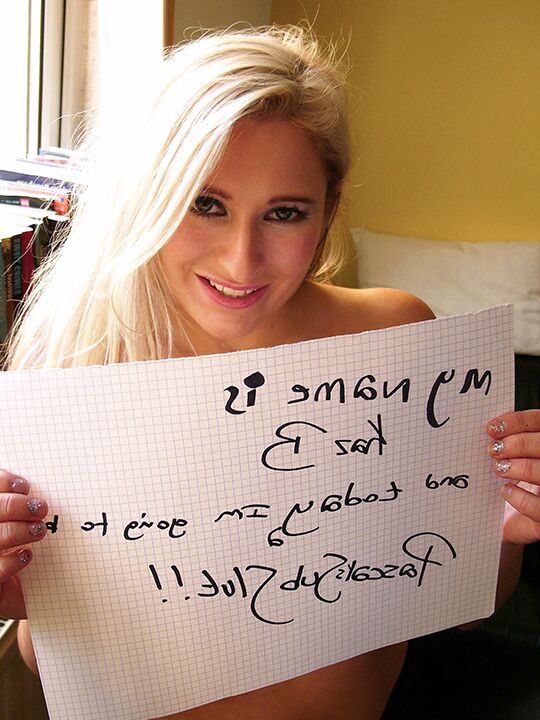 My name is
Kaz B
and today I'm going to b
a
Pascal's Sub Slut!!